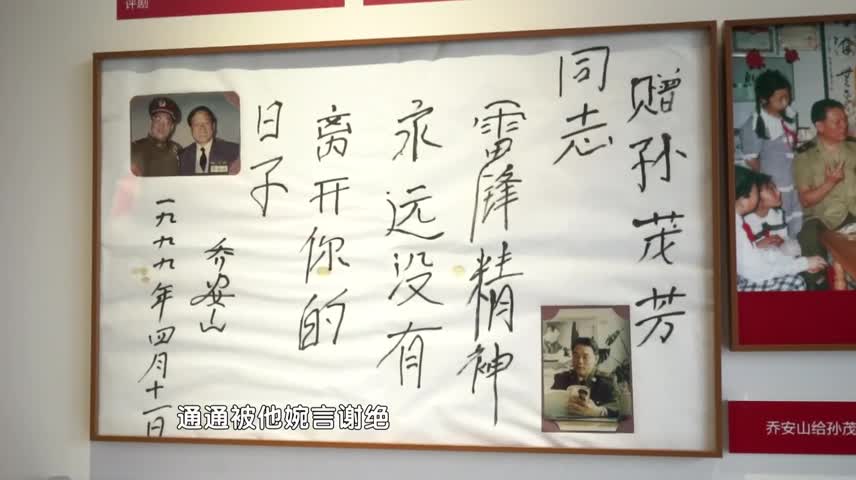 评剧
赠孙茂芳
同志
雷锋精神
永远没有
离开你的
日子
乔安山
一九九九年四月十一日
乔安山给孙茂
通通被他婉言谢绝